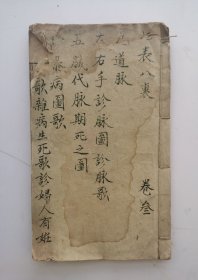 表八裏
道脉
左右手診脉圖診脉歌
五臟代脉期死之圖
病圖歌
歌雜病生死歌診婦人有妊
卷叄